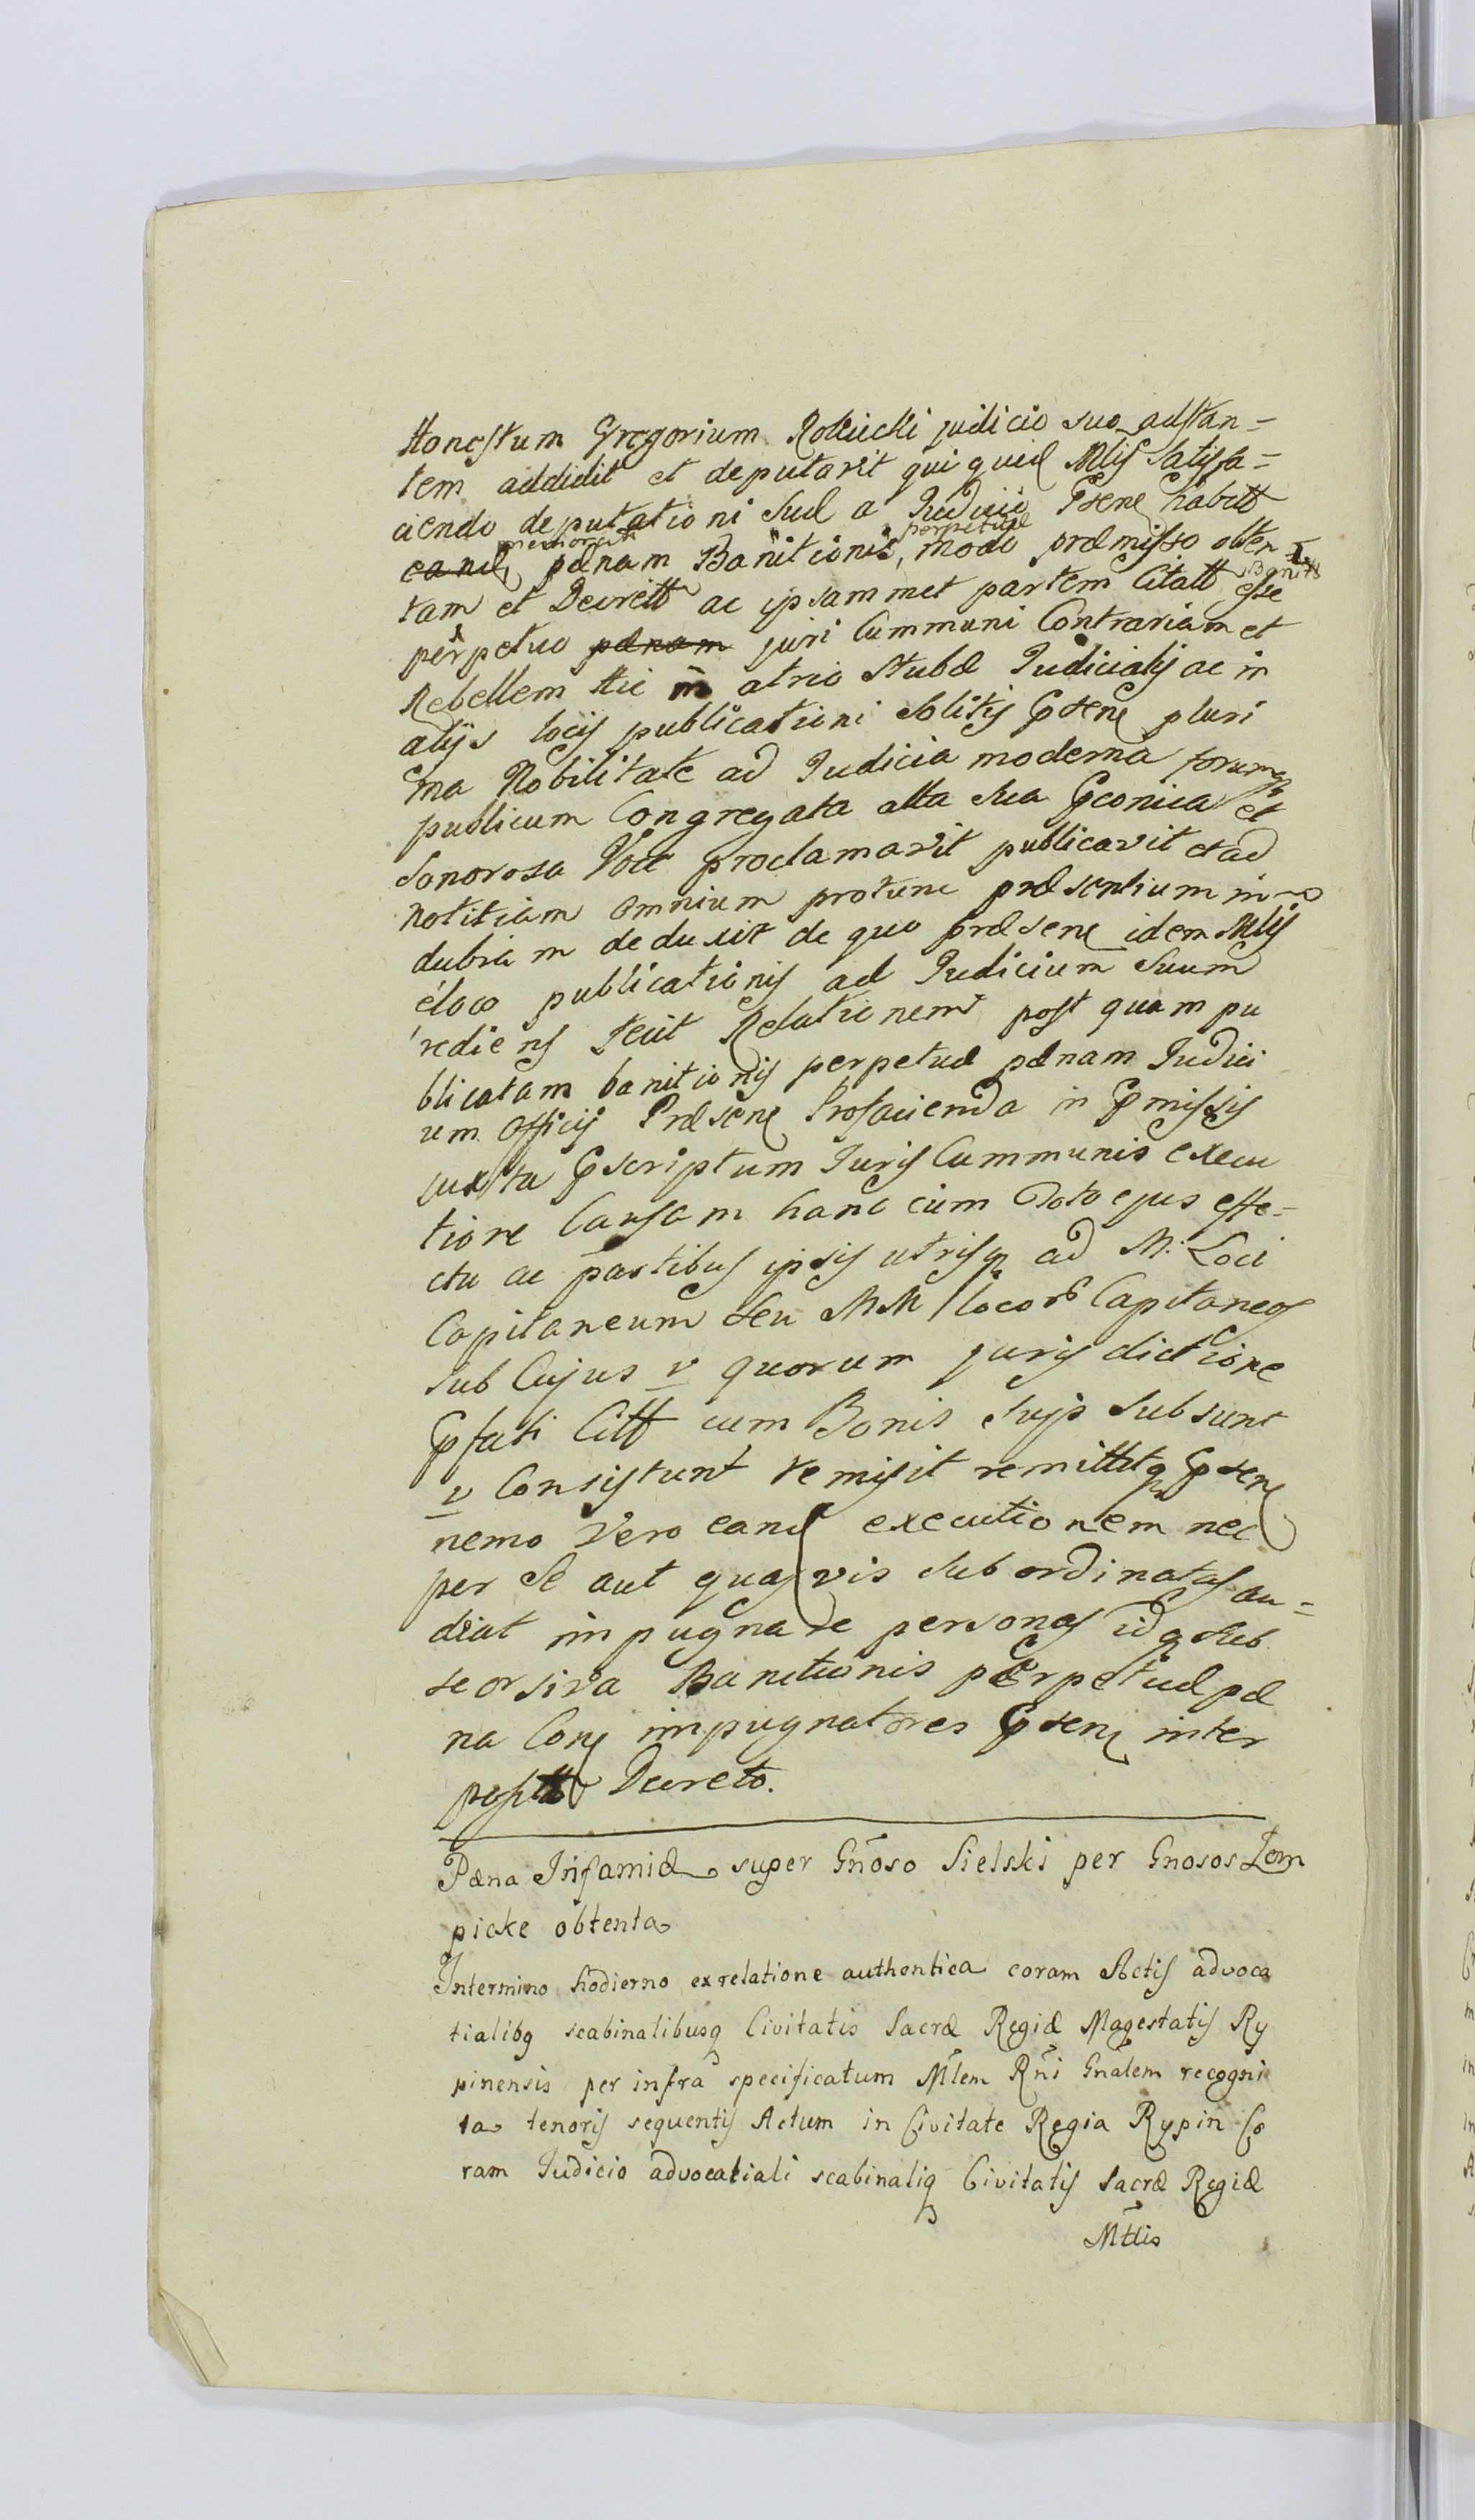 Honestum Gregorium Rokicki judicio suo adstan-
tem addidit et deputavit qui quid Mlis satisfa-
ciendo deputationi suæ a Judicio Psene habitt
memorati perpetuæ
eand pænam Banitionis, modo præmisso obten
Banitt
tam et Decrett ac ipsammet partem Citatt esse
perpetuo pænam juri Cummuni Contrariam et
Rebellem hic in atrio stubæ Judicialis ac in
alijs locis publicationi solitis psene pluri
ma Nobilitate ad Judicia moderna forumq
publicum Congregata alta sua pconica et
sonorosa Voce proclamavit publicavit et ad
notitiam omnium protunc præsentium in
dubiam deduxit de quo præsene idem Mlis
e loco publicationis ad Judicium suum
rediens fecit Relationem post quam pu
blicatam banitionis perpetuæ pænam Judici
um officij Præsene Profacienda in pmissis
juxta pscriptum Juris Cummunis execu
tione Causam hanc cum toto ejus effe-
ctu ac partibus ipsis utrisq ad M. Loci
Capitaneum seu MM locor Capitaneos
sub Cujus v quorum jurisdictione
pfati Citt cum Bonis suis subsunt
v Consistunt remisit remittitq psene
nemo vero eand executionem nec
per se aut quasvis subordinatas au-
deat impugnare personas idq sub
seorsiva Banitionis perpetuæ pæ
na Cone impugnatores psene inter
posito Decreto.
Pæna Infamiæ super Gnoso Sielski per Gnosos Zem
picke obtenta
In termino hodierno ex relatione authentica coram Actis advoca
tialibq scabinalibusq Civitatis Sacræ Regiæ Magestatis Ry
pinensis per infra specificatum Mlem Rni Gnalem recogni
ta tenoris sequentis Actum in Civitate Regia Rypin Co
ram Judicio advocatiali scabinaliq Civitatis Sacræ Regiæ
Mttis